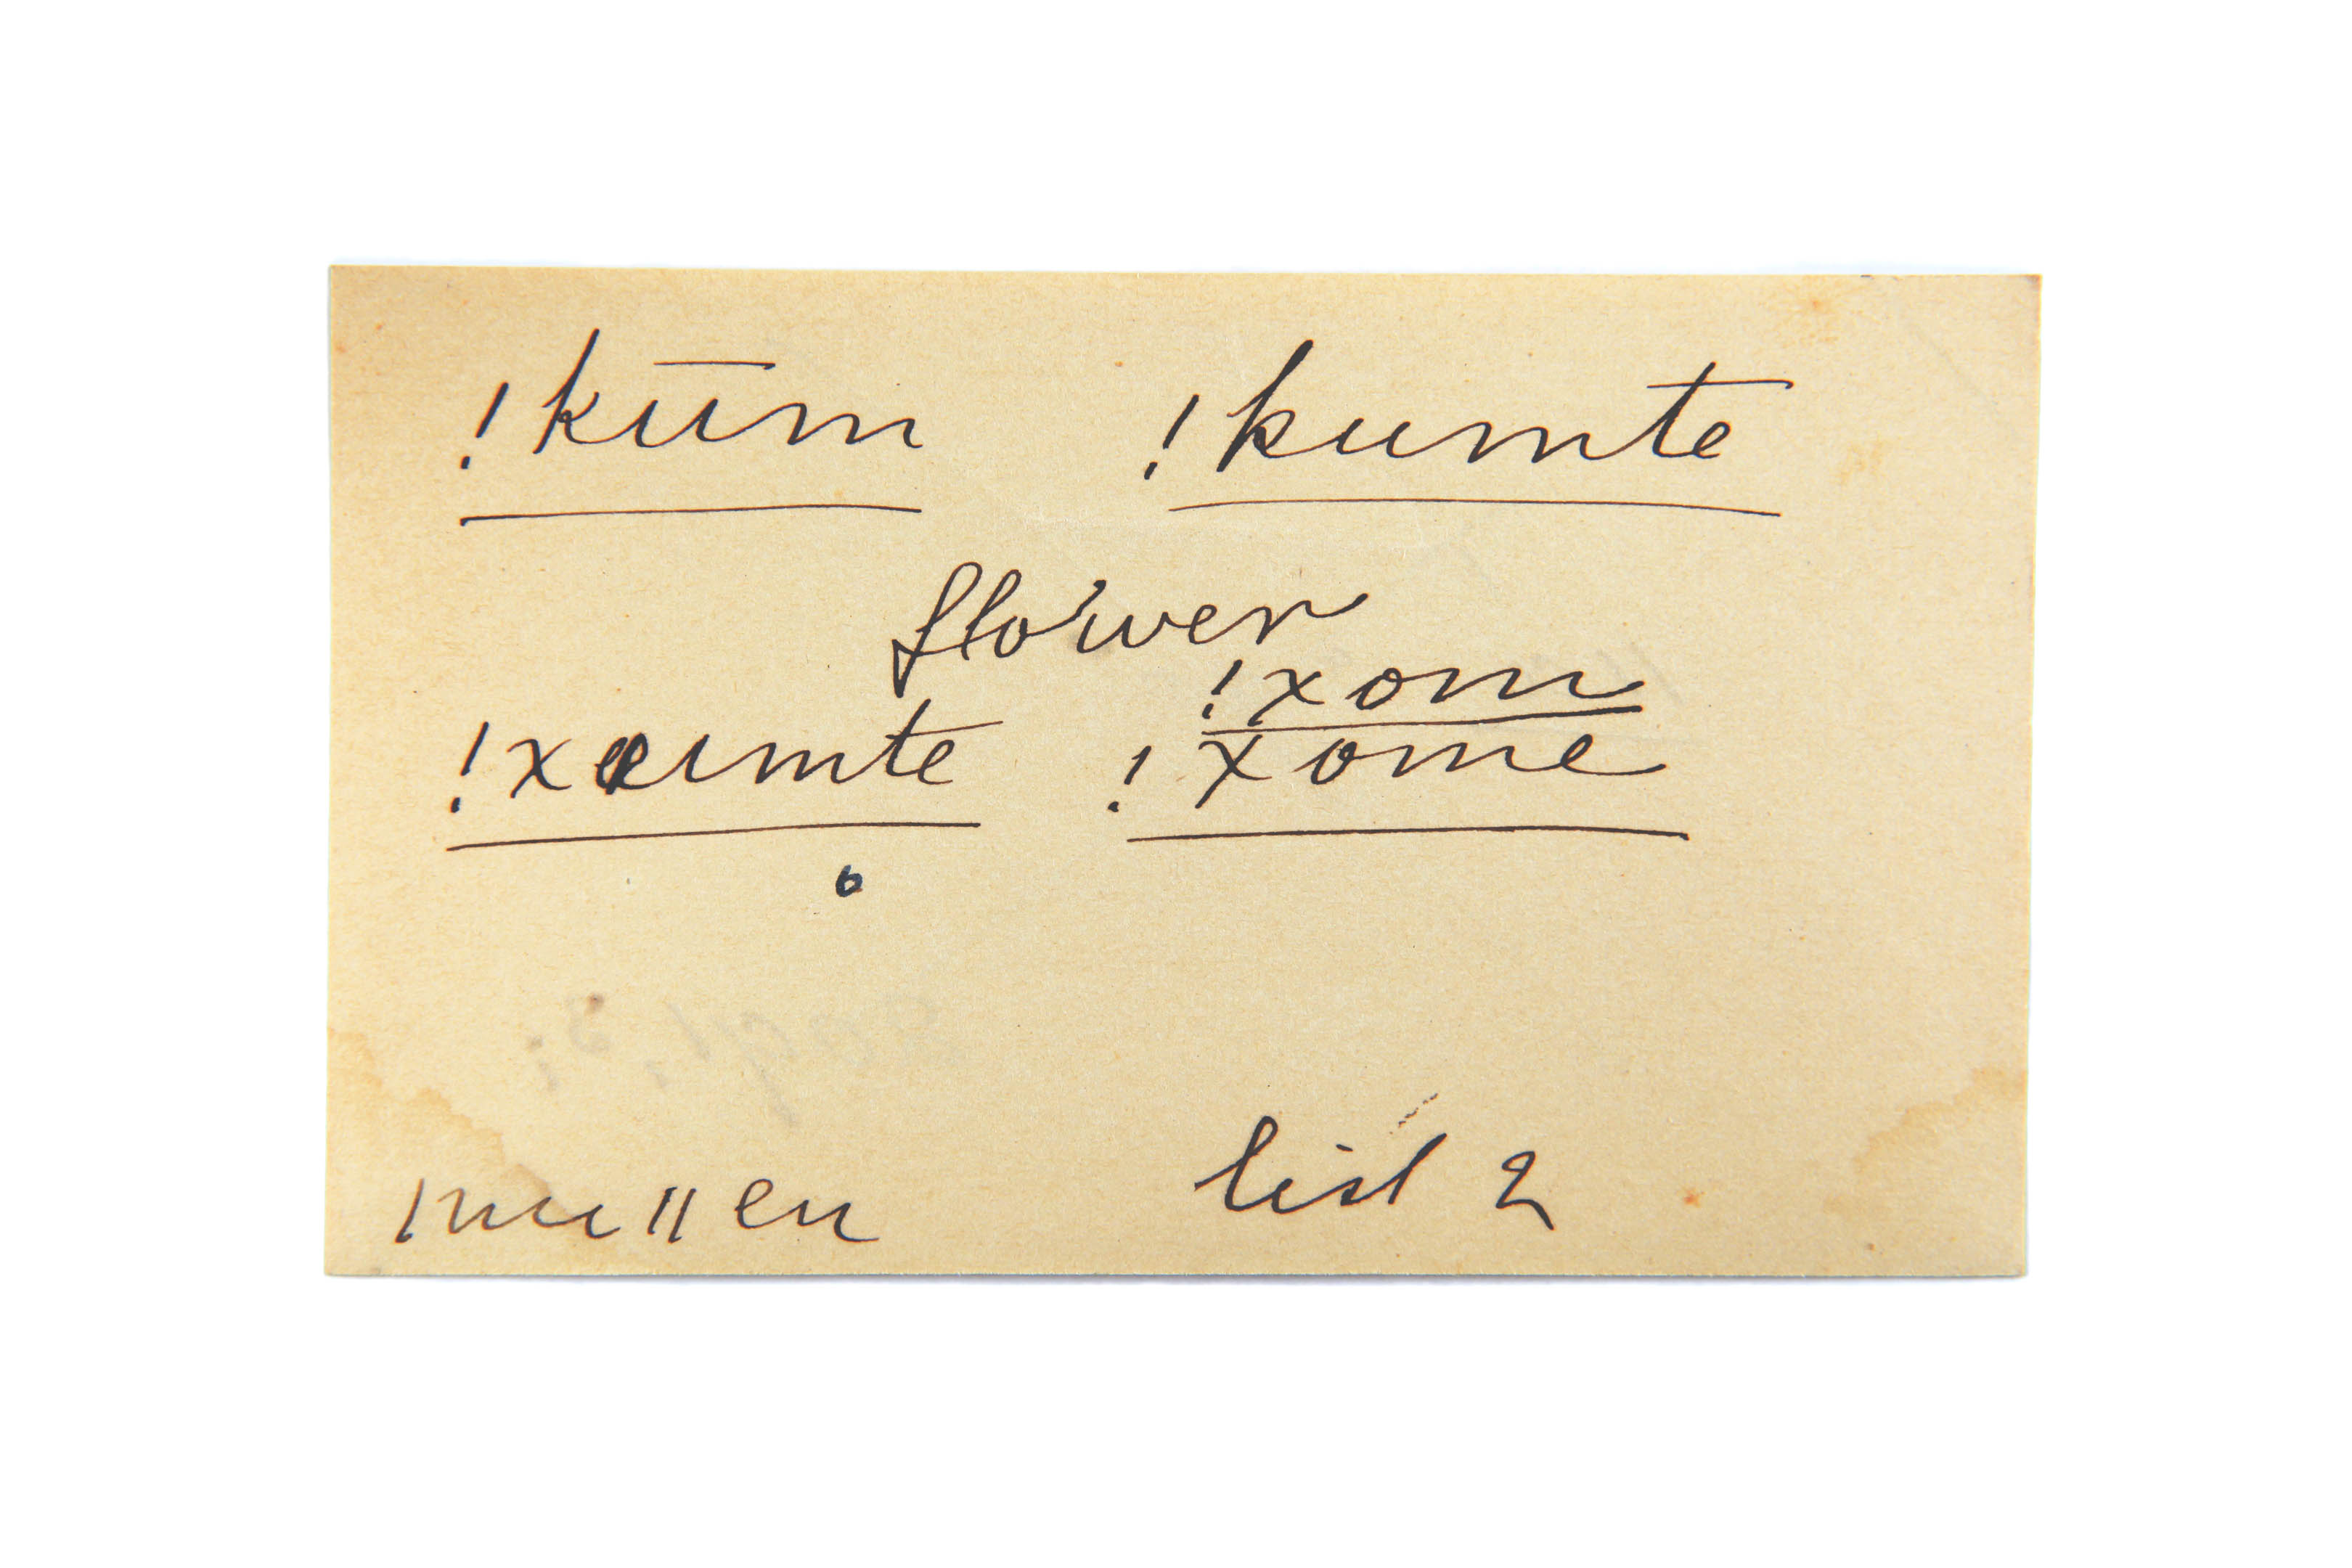 !kūm !kumte
flower
!xom
!xumte !xome
ǀnuǁen list 2